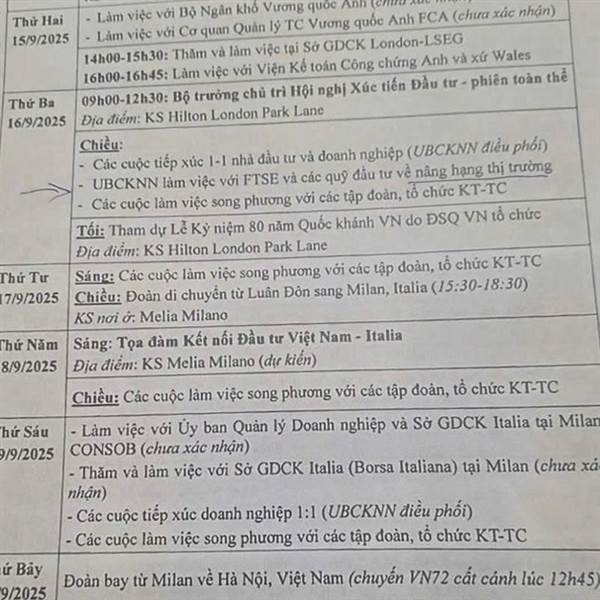 Thứ Hai
15/9/2025
- Làm việc với Bộ Ngân khố Vương quốc Anh (chưa xác
- Làm việc với Cơ quan Quản lý TC Vương quốc Anh FCA (chưa xác nhận)
14h00-15h30: Thăm và làm việc tại Sở GDCK London-LSEG
16h00-16h45: Làm việc với Viện Kế toán Công chứng Anh và xứ Wales
Thứ Ba
16/9/2025
09h00-12h30: Bộ trưởng chủ trì Hội nghị Xúc tiến Đầu tư - phiên toàn thể
Địa điểm: KS Hilton London Park Lane
Chiều:
- Các cuộc tiếp xúc 1-1 nhà đầu tư và doanh nghiệp (UBCKNN điều phối)
- UBCKNN làm việc với FTSE và các quỹ đầu tư về nâng hạng thị trường
- Các cuộc làm việc song phương với các tập đoàn, tổ chức KT-TC
Tối: Tham dự Lễ Kỷ niệm 80 năm Quốc khánh VN do ĐSQ VN tổ chức
Địa điểm: KS Hilton London Park Lane
Thứ Tư
17/9/2025
Sáng: Các cuộc làm việc song phương với các tập đoàn, tổ chức KT-TC
Chiều: Đoàn di chuyển từ Luân Đôn sang Milan, Italia (15:30-18:30)
KS nơi ở: Melia Milano
Thứ Năm
8/9/2025
Sáng: Tọa đàm Kết nối Đầu tư Việt Nam - Italia
Địa điểm: KS Melia Milano (dự kiến)
Chiều: Các cuộc làm việc song phương với các tập đoàn, tổ chức KT-TC
Thứ Sáu
9/9/2025
- Làm việc với Ủy ban Quản lý Doanh nghiệp và Sở GDCK Italia tại Milan
CONSOB (chưa xác nhận)
- Thăm và làm việc với Sở GDCK Italia (Borsa Italiana) tại Milan (chưa xác
nhận)
- Các cuộc tiếp xúc doanh nghiệp 1:1 (UBCKNN điều phối)
- Các cuộc làm việc song phương với các tập đoàn, tổ chức KT-TC
ứ Bảy
/9/2025
Đoàn bay từ Milan về Hà Nội, Việt Nam (chuyến VN72 cất cánh lúc 12h45)